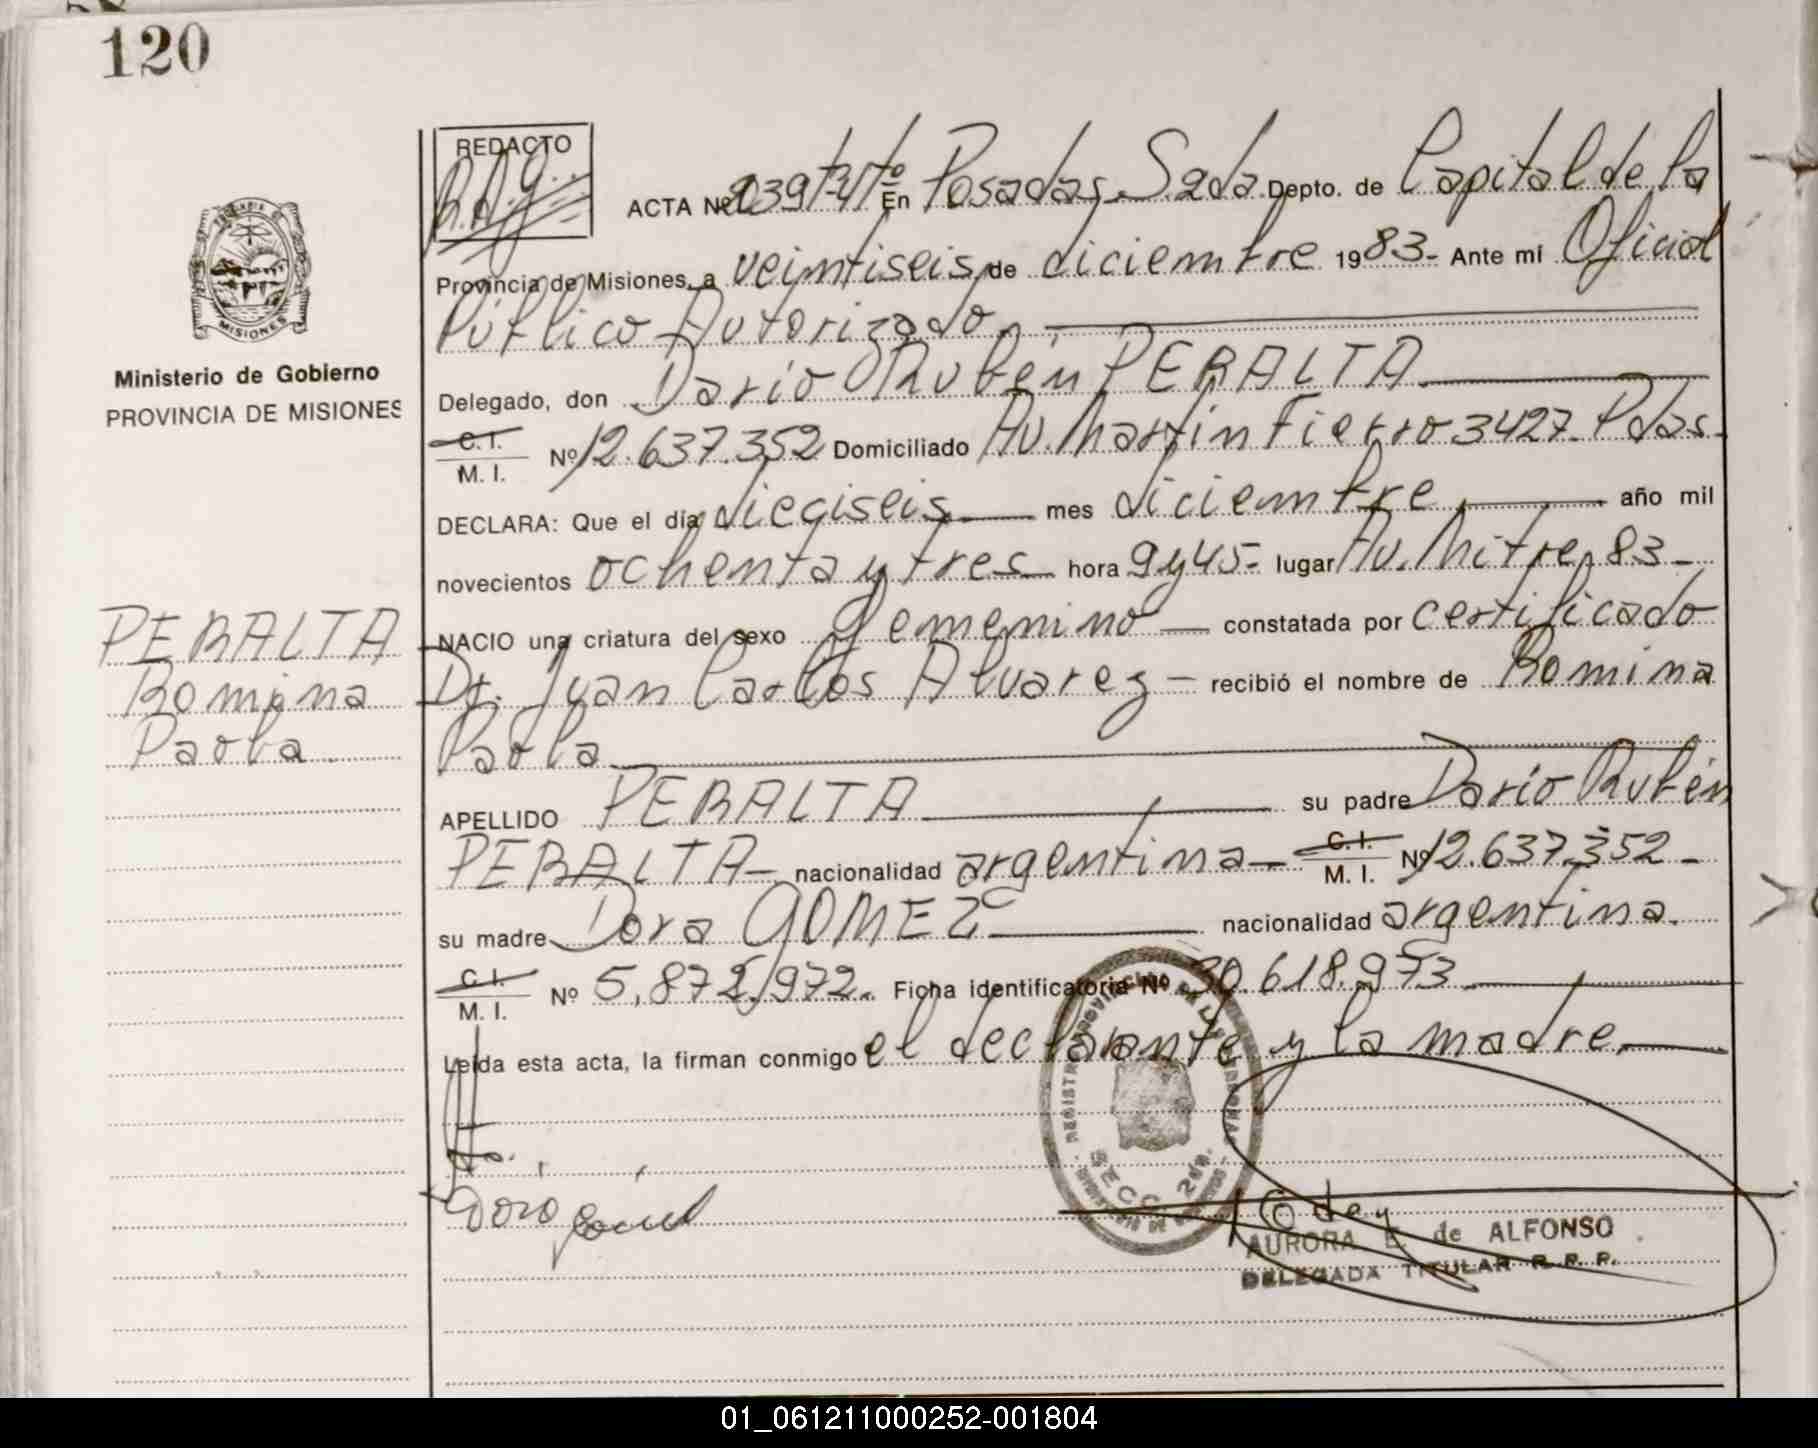 120
REDACTO
ACTA Nº 2039 En Posadas S.2da Depto. de Capital de la
Provincia de Misiones, a veintiseis de diciembre 1983- Ante mi Oficial
Público Autorizado.
Ministerio de Gobierno
PROVINCIA DE MISIONES
MISIONES
Delegado, don Darío Rubén PERALTA
C. I.
M. I. Nº 12.637.352 Domiciliado Av. Martín Fierro 3427- Pdas.
DECLARA: Que el día dieciseis mes diciembre año mil
novecientos ochenta y tres hora 9 y 45- lugar Av. Mitre 83-
PERALTA
Romina
Paola
NACIO una criatura del sexo femenino constatada por certificado
Dr. Juan Carlos Alvarez - recibió el nombre de Romina
Paola
APELLIDO PERALTA su padre Darío Rubén
PERALTA- nacionalidad argentina- C. I.
M. I. Nº 12.637.352-
su madre Dora GOMEZ nacionalidad argentina.
C. I.
M. I. Nº 5.872.972. Ficha identificatoria Nº 30.618.973
Leída esta acta, la firman conmigo el declarante y la madre.
SECC. 2da.
AURORA E. de ALFONSO
DELEGADA TITULAR R.P.P.
01_061211000252-001804